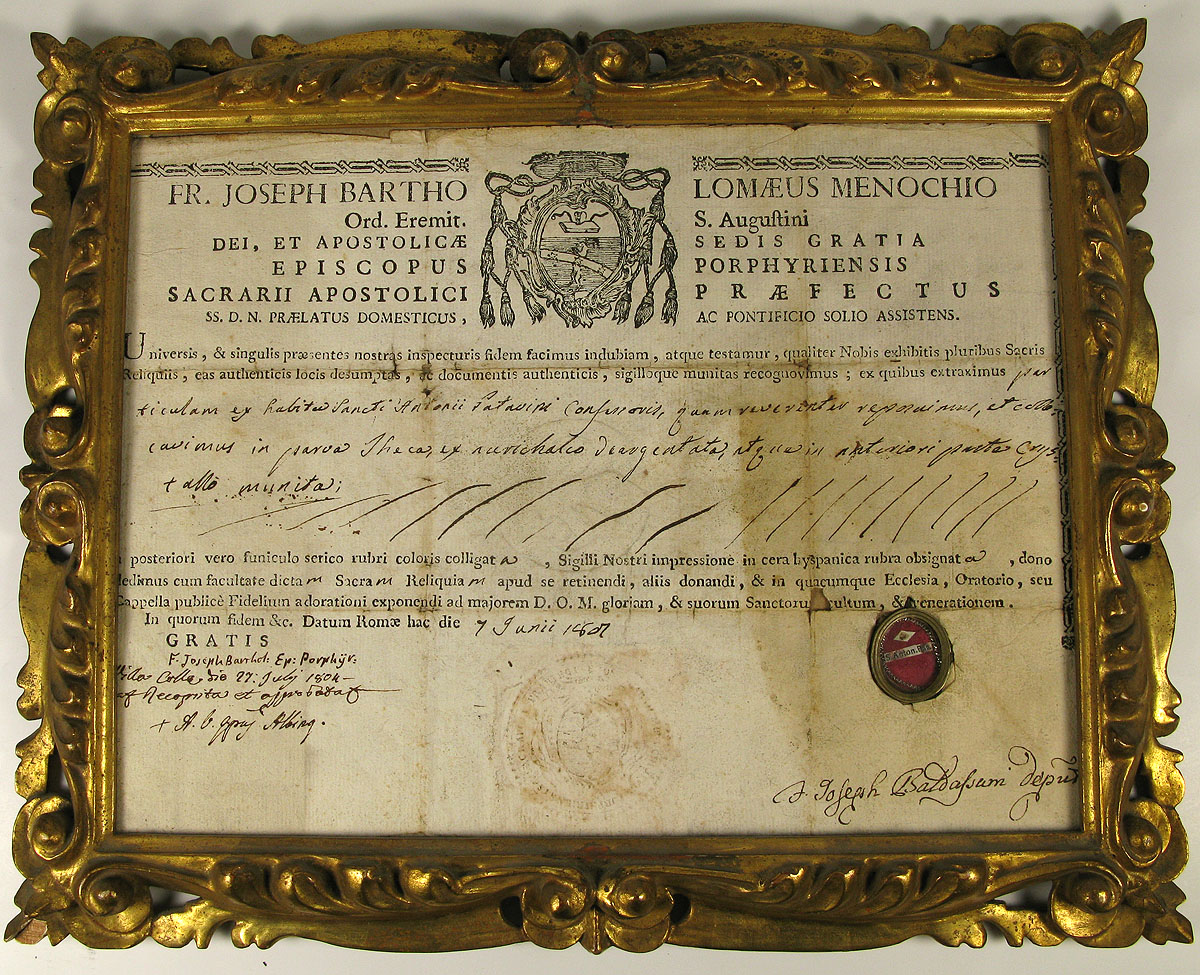 FR. JOSEPH BARTHO LOMÆUS MENOCHIO
Ord. Eremit. S. Auguſtini
DEI, ET APOSTOLICÆ SEDIS GRATIA
EPISCOPUS PORPHYRIENSIS
SACRARII APOSTOLICI PRÆFECTUS
SS. D. N. PRÆLATUS DOMESTICUS, AC PONTIFICIO SOLIO ASSISTENS.
Universis, & singulis præsentes nostras inspecturis fidem facimus indubiam, atque testamur, qualiter Nobis exhibitis pluribus Sacris
Reliquiis, eas authenticis locis desumptas, ac documentis authenticis, sigilloque munitas recognovimus; ex quibus extraximus par
ticulam ex habitu Sancti Antonii Patavini Confessoris, quam reverenter reposuimus, et collo
cavimus in parva Theca, ex aurichalco deargentata, atque in anteriori parte Crys
tallo munita;
posteriori vero funiculo serico rubri coloris colligata, Sigilli Nostri impressione in cera hyspanica rubra obsignata, dono
dedimus cum facultate dictam Sacram Reliquiam apud se retinendi, aliis donandi, & in quacumque Ecclesia, Oratorio, seu
Cappella publicè Fidelium adorationi exponendi ad majorem D. O. M. gloriam, & suorum Sanctorum cultum, & venerationem.
In quorum fidem &c. Datum Romæ hac die 7 Junii 1801
GRATIS
F. Joseph Barthol: Ep: Porphÿr:
Colle, die 27: Julj 1804
Recognita et approbata
S. Anton. Pat.
Joseph Baldassarri